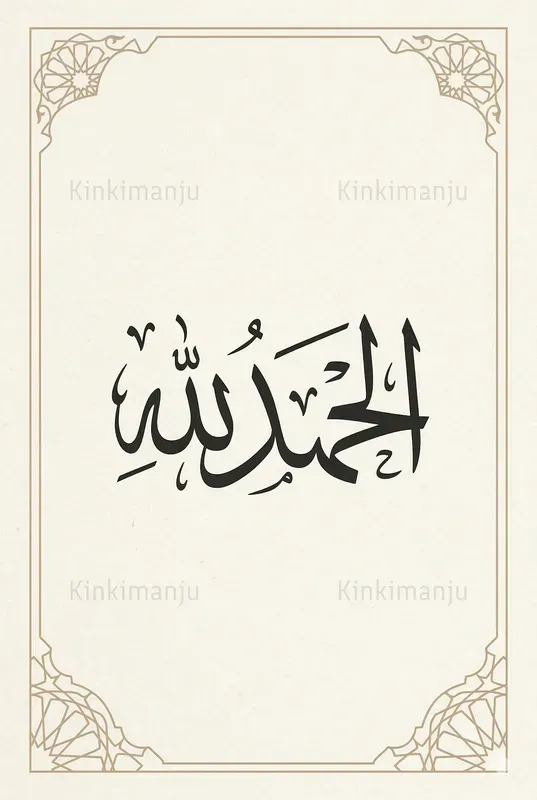 Kinkimanju Kinkimanju
الحمدُ للهِ
Kinkimanju Kinkimanju